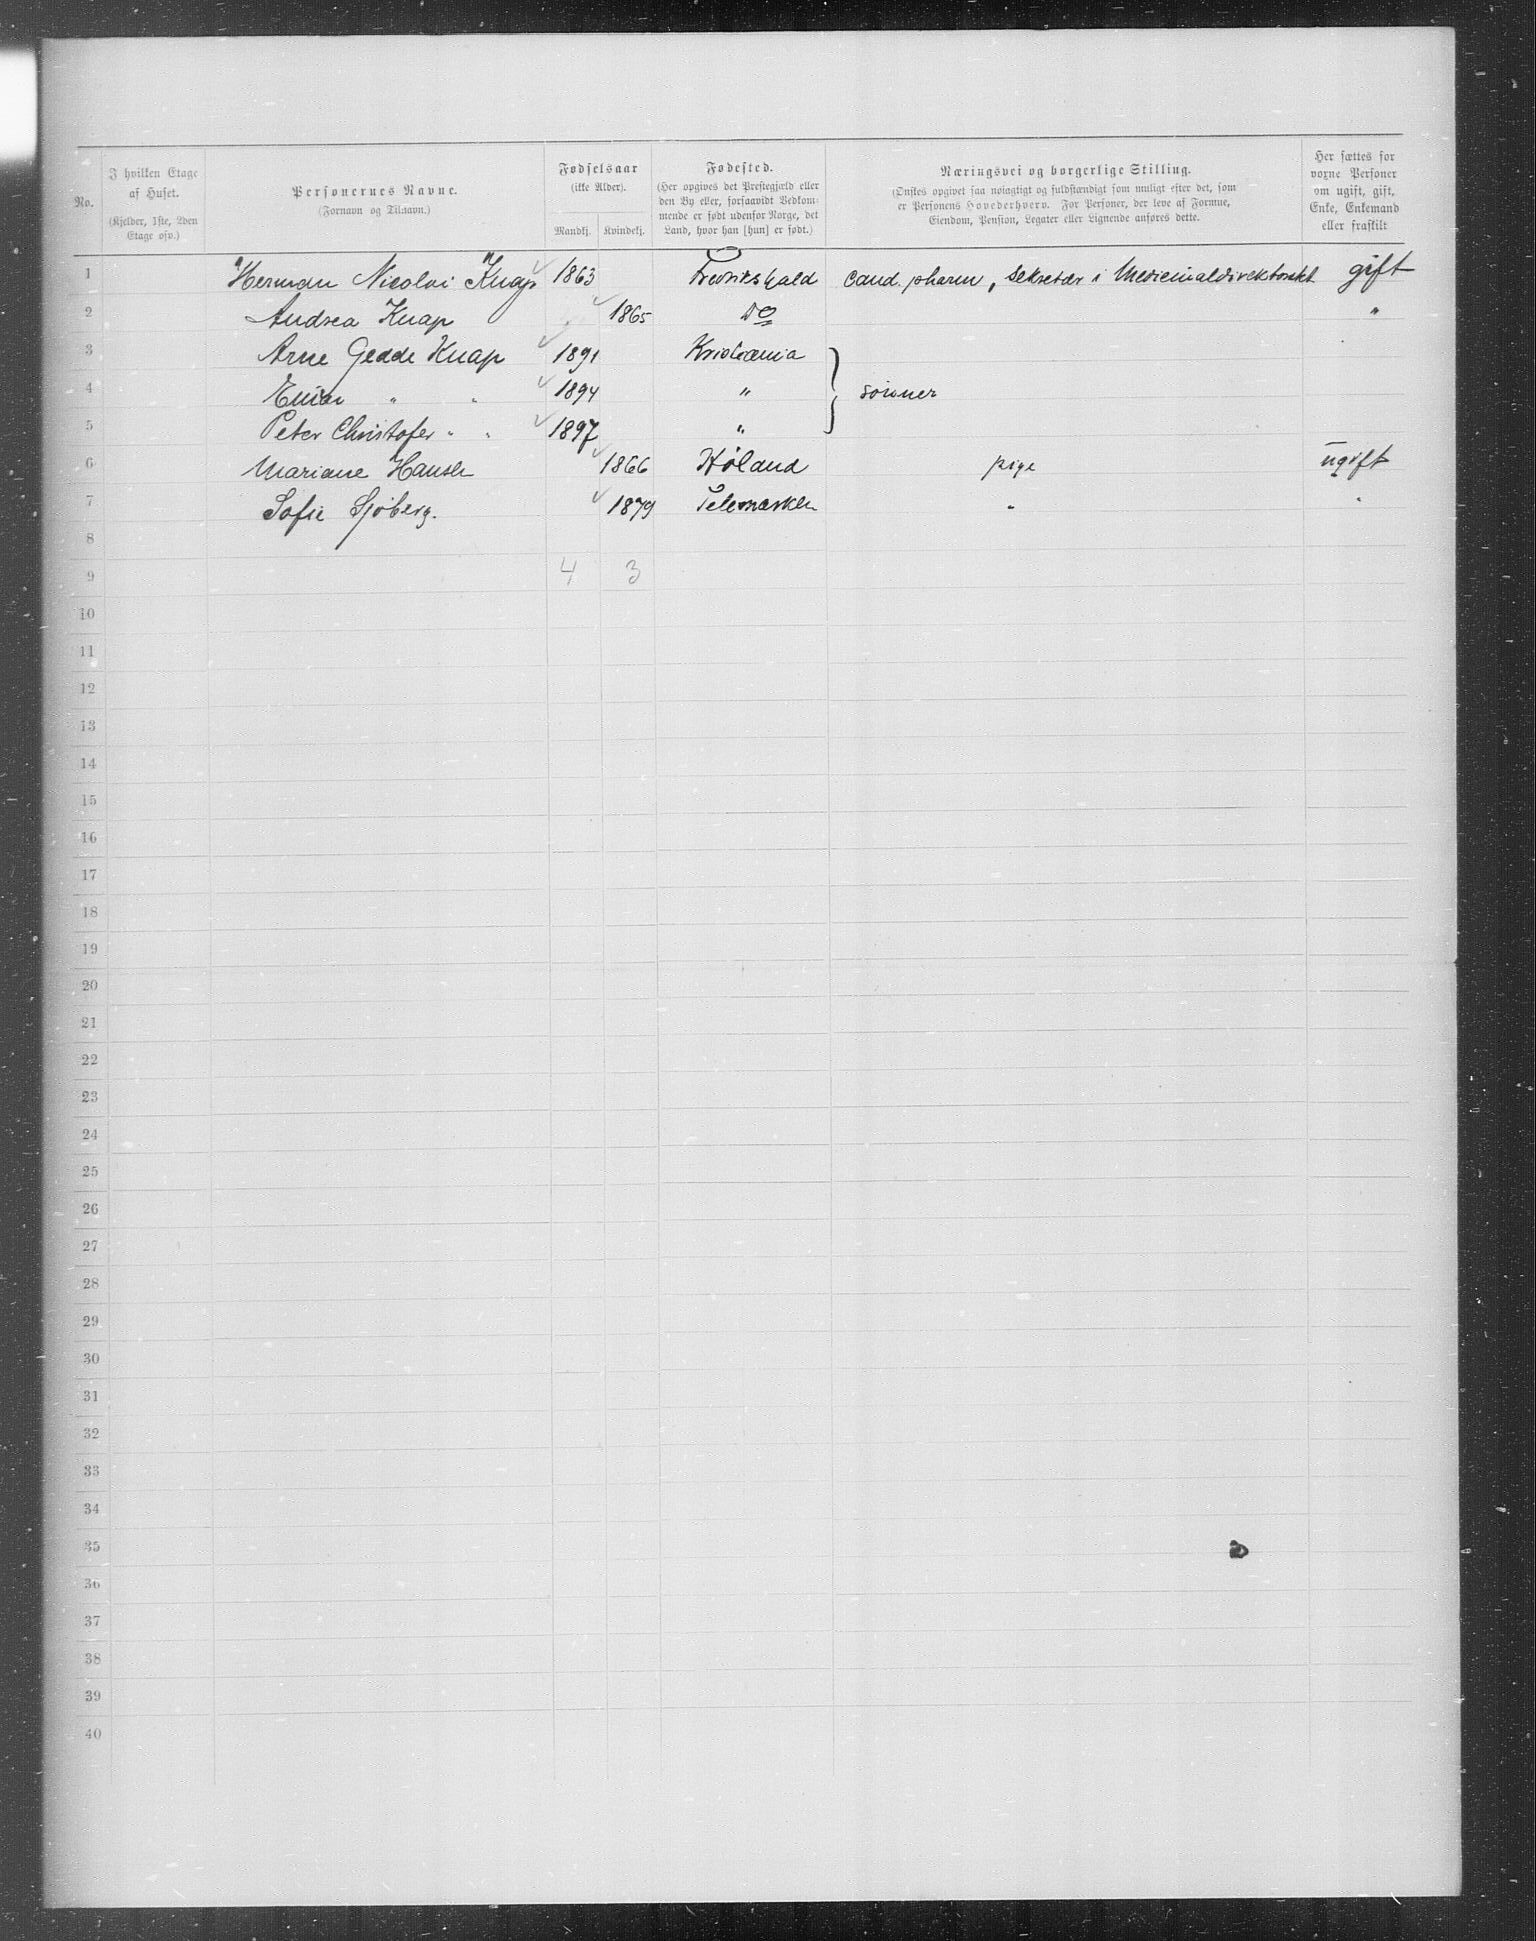 No.
I hvilken Etage af Huset.
(Kjelder, 1ste, 2den Etage osv.)
Personernes Navne.
(Fornavn og Tilnavn.)
Fødselsaar
(ikke Alder).
Mandkj. Kvindekj.
Fødested.
(Her opgives det Prestegjæld eller
den By eller, forsaavidt Vedkom-
mende er født udenfor Norge, det
Land, hvor han [hun] er født.)
Næringsvei og borgerlige Stilling.
(Ønskes opgivet saa nøiagtigt og fuldstændigt som muligt efter det, som
er Personens Hovederhverv. For Personer, der leve af Formue,
Eiendom, Pension, Legater eller Lignende anføres dette.
Her sættes for
voxne Personer
om ugift, gift,
Enke, Enkemand
eller fraskilt
1 Herman Nicolai Knap 1863 Fredrikshald cand. pharm, sekretær i Medicinaldirektoratet gift
2 Andrea Knap 1865 Do "
3 Arne Gedde Knap 1891 Kristiania
4 Einar " " 1894 " } sønner
5 Peter Christofer " " 1897 "
6 Mariane Hansen 1866 Høland pige ugift
7 Sofie Sjøberg. 1879 Telemarken " "
8
9 4 3
10
11
12
13
14
15
16
17
18
19
20
21
22
23
24
25
26
27
28
29
30
31
32
33
34
35
36
37
38
39
40